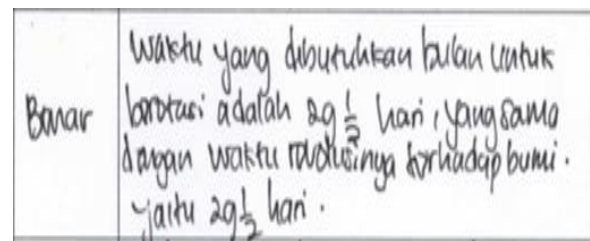 Benar
Waktu yang dibutuhkan bulan untuk
berotasi adalah 29 1/2 hari, yang sama
dengan waktu revolusinya terhadap bumi.
yaitu 29 1/2 hari.